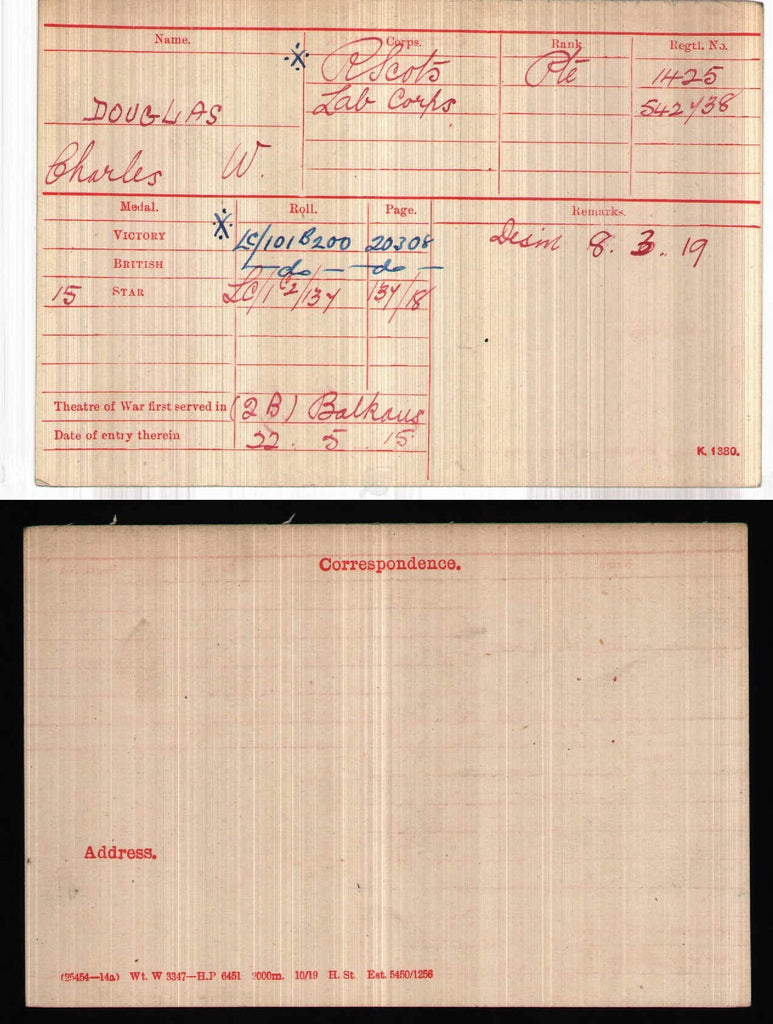 Name. Corps. Rank Regtl. No.
※ R Scots Pte 1425
DOUGLAS Lab Corps 542738
Charles W.
Medal. ※ Roll. Page. Remarks.
VICTORY LC/101B200 20308 Disem 8. 3. 19
BRITISH — do — — do —
15 STAR LC/1C2/137 137/18
Theatre of War first served in (2B) Balkans
Date of entry therein 22. 5. 15
K. 1380.
Correspondence.
Address.
(25454—14a) Wt. W 3347—H.P. 6451 2000m. 10/19 H. St. Est. 5450/1256